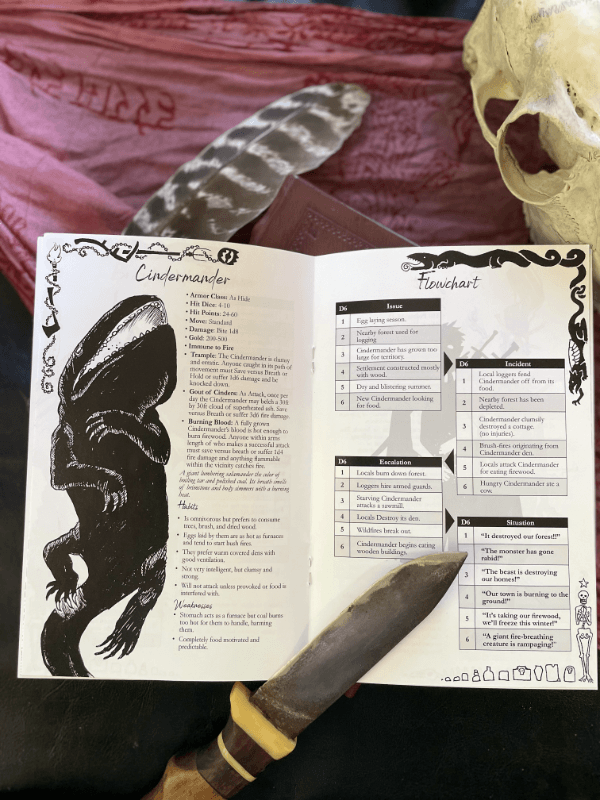 Cindermander
• Armor Class: As Hide
• Hit Dice: 4-10
• Hit Points: 24-60
• Move: Standard
• Damage: Bite 1d8
• Gold: 200-500
• Immune to Fire
• Trample: The Cindermander is clumsy
and erratic. Anyone caught in its path of
movement must Save versus Breath or
Hold or suffer 1d6 damage and be
knocked down.
• Gout of Cinders: As Attack, once per
day the Cindermander may belch a 30ft
by 30ft cloud of superheated ash. Save
versus Breath or suffer 3d6 fire damage.
• Burning Blood: A fully grown
Cindermander's blood is hot enough to
burn firewood. Anyone within arms
length of who makes a successful attack
must save versus breath or suffer 1d4
fire damage and anything flammable
within the vicinity catches fire.
A giant lumbering salamander the color of
boiling tar and polished coal. Its breath smells
of
and body simmers with a burning
heat.
Habits
• Is omnivorous but prefers to consume
trees, brush, and dried wood.
• Eggs laid by them are as hot as furnaces
and tend to start bush fires.
• They prefer warm covered dens with
good ventilation.
• Not very intelligent, but clumsy and
strong.
• Will not attack unless provoked or food is
interfered with.
Weaknesses
• Stomach acts as a furnace but coal burns
too hot for them to handle, harming
them.
• Completely food motivated and
predictable.
Flowchart
D6 Issue
1 Egg laying season.
2 Nearby forest used for
logging
3 Cindermander has grown too
large for territory.
4 Settlement constructed mostly
with wood.
5 Dry and blistering summer.
6 New Cindermander looking
for food.
D6 Incident
1 Local loggers fend
Cindermander off from its
food.
2 Nearby forest has been
depleted.
3 Cindermander clumsily
destroyed a cottage.
(no injuries).
4 Brush-fires originating from
Cindermander den.
5 Locals attack Cindermander
for eating firewood.
6 Hungry Cindermander ate a
cow.
D6 Escalation
1 Locals burn down forest.
2 Loggers hire armed guards.
3 Starving Cindermander
attacks a sawmill.
4 Locals Destroy its den.
5 Wildfires break out.
6 Cindermander begins eating
wooden buildings.
D6 Situation
1 "It destroyed our forest!!"
"The monster has gone
rabid!"
3 "The beast is destroying
our homes!"
4 "Our town is burning to the
ground!"
5 "It's taking our firewood,
we'll freeze this winter!"
6 "A giant fire-breathing
creature is rampaging!"